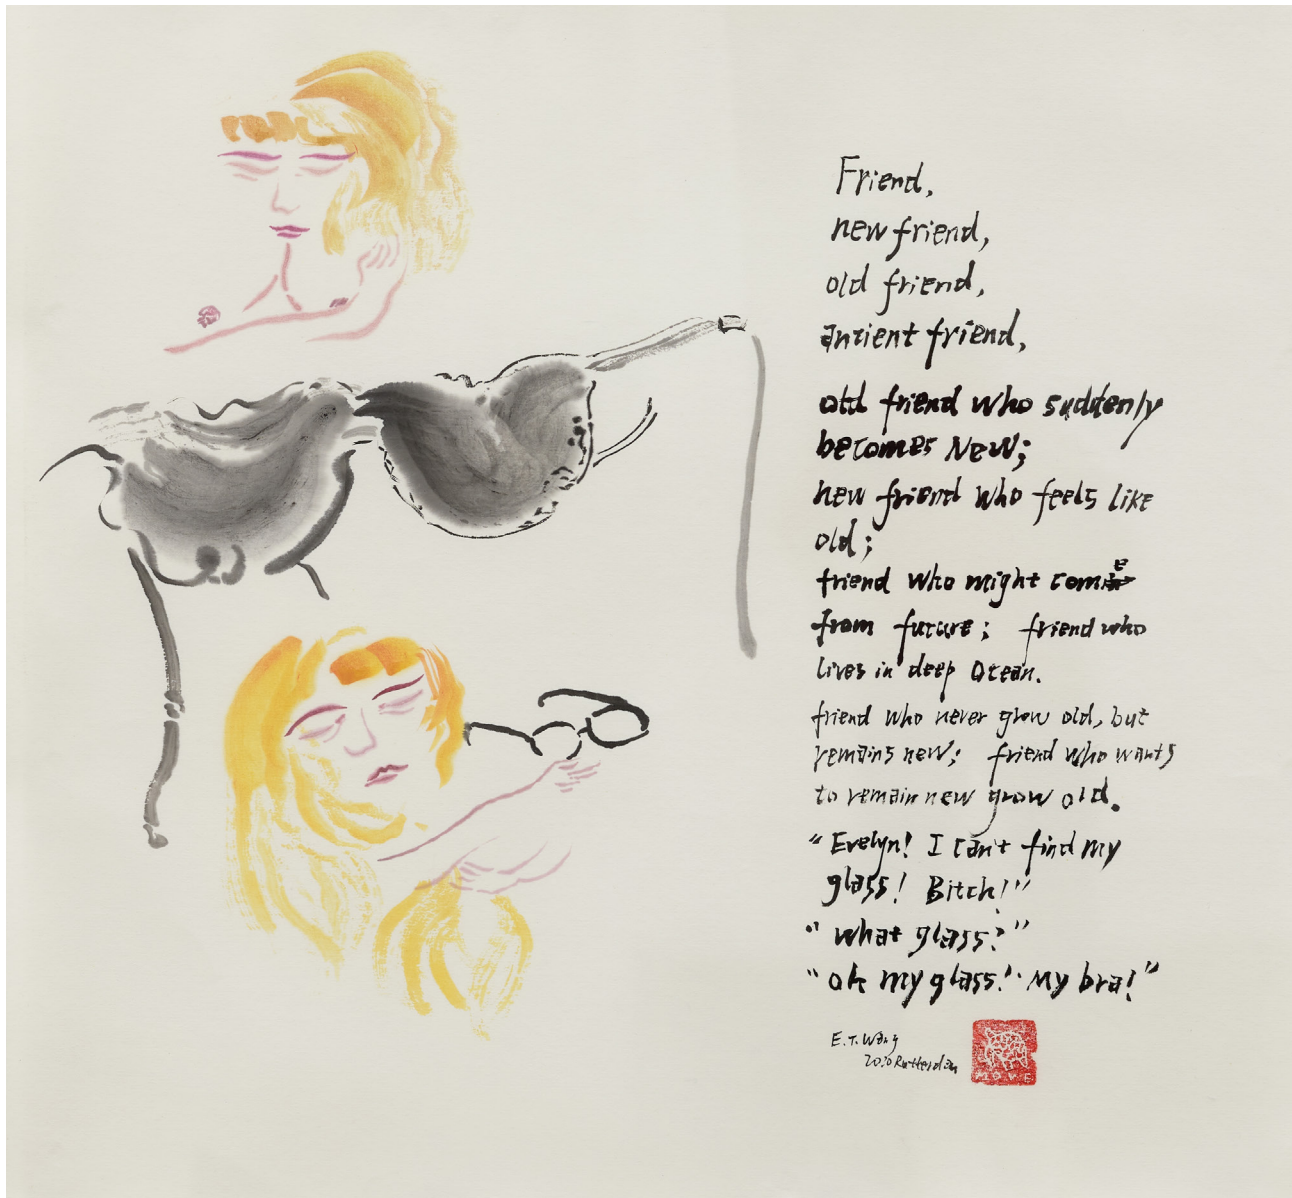 Friend,
new friend,
old friend,
ancient friend,
old friend who suddenly
becomes New;
new friend who feels like
old;
friend who might come
from future; friend who
lives in deep Ocean.
friend who never grow old, but
remains new; friend who wants
to remain new grow old.
"Evelyn! I can't find my
glass! Bitch!"
"what glass?"
"oh my glass! My bra!"
E.T. Wang
Rotterdam
MOVE